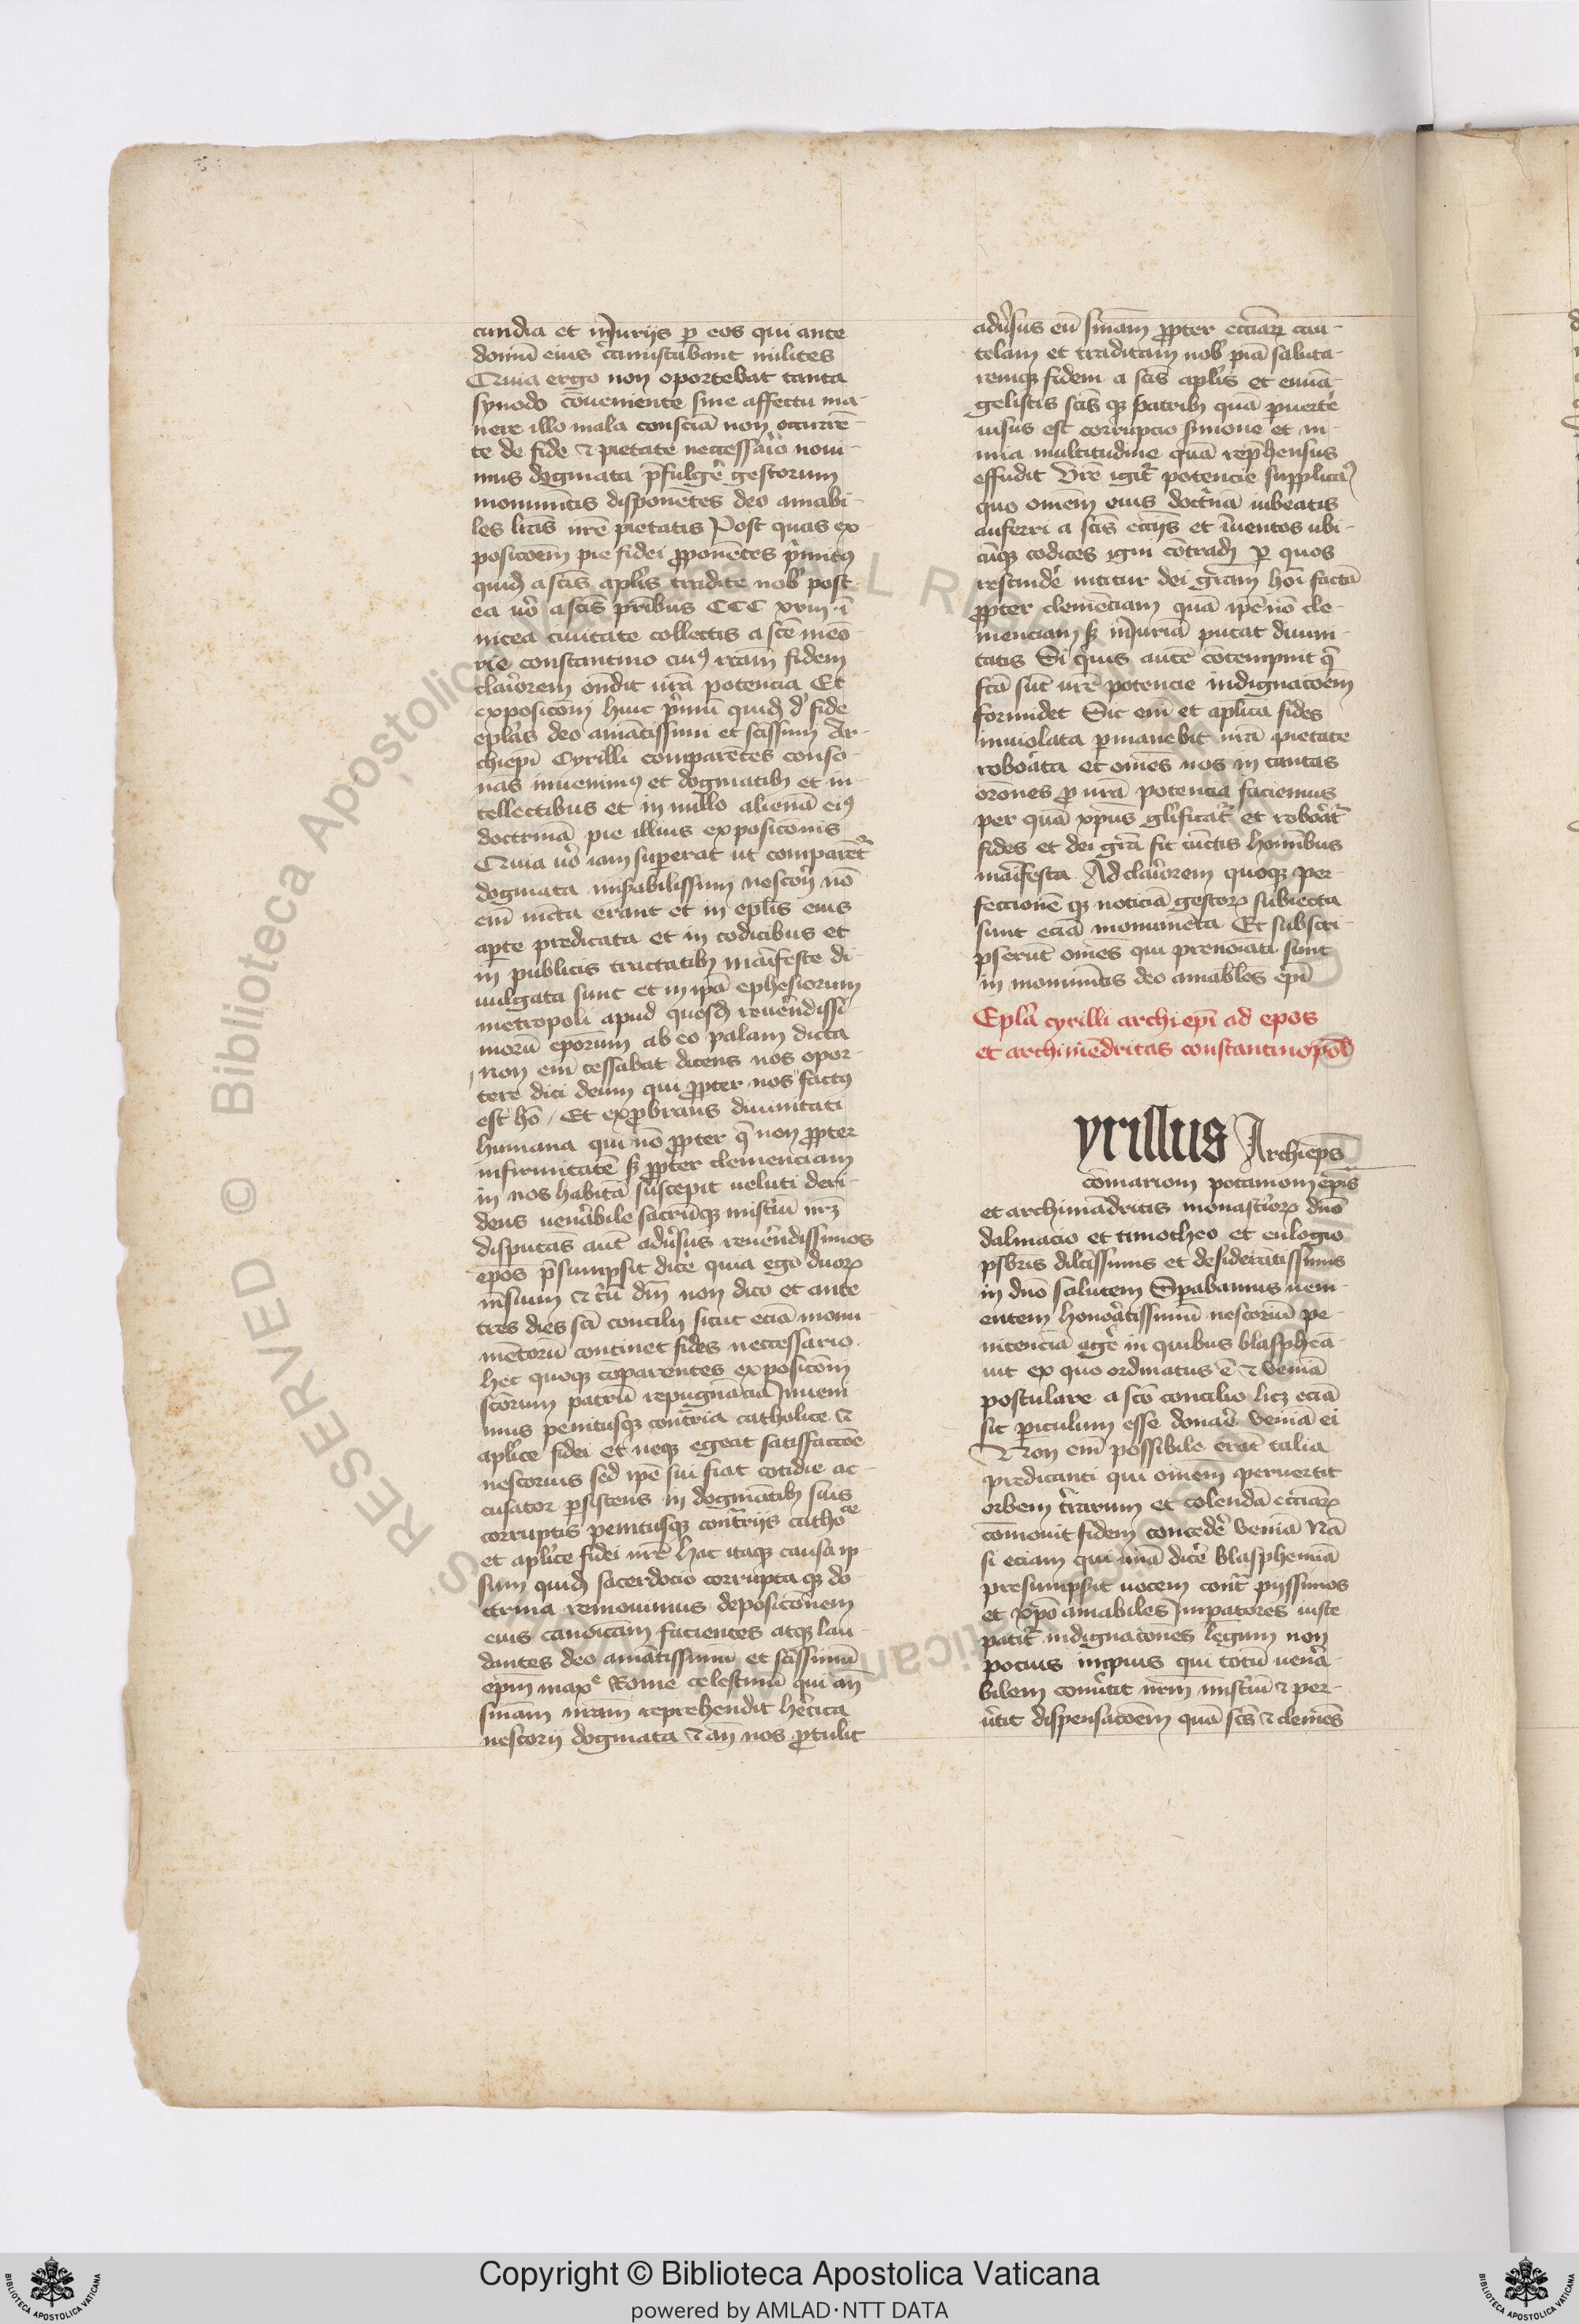 cundia et iniuriis ꝑ eos qui ante
domū eius cūmistabant milites
Quia ergo non oportebat tanta
synodo cōueniente sine affectu ma-
nere illo mala consciā non occurrē-
te de fide ⁊ pietate neccessario noui-
mus dogmata p̄fulgẽ gestorum
monumētis disponētes deo amabi-
les lr̄as ur̄e pietatis Post quas ex-
posicōem pie fidei ꝓponētes p̄mitꝰ
quidē a sc̄is apl̄is tradite nob̄ post-
ea uō a sc̄is pr̄ibus CCC xviii ī
nicea ciuitate collectis a sc̄e meō-
rie constantino cuiꝰ rr̄am fidem
clarorem on̄dit ur̄a potencia Et
exposiconi huic p̄mū quidē d' fide
epl̄as deo amātissimi et sc̄issimi Ar-
chiepī Cyrilli comparētes conso-
nas inuenimꝰ et dogmatibꝫ et in-
tellectibus et in nullo alienā eiꝰ
doctrinā pie illius exposicōnis
Quia uō iam superat ut comparēt̄
dogmata miẜabilissimi nestorij nō
em̄ iūcta erant et in epl̄is eius
aꝑte predicata et in codicibus et
in publicis tractatibꝫ maīfeste di-
uulgata sunt et in ip̄a ephesiorum
metropoli apud quosdā reuēndissi-
morū eporum ab eo palam dicta
non em̄ cessabat dicens nos opor-
tere dici deum qui ꝓpter nos factꝰ
est hō / Et exꝓbrans diuinitati
humana qui nō ꝓpter q̄ non ꝓpter
infirmitatē sꝫ ꝓpter clemenciam
in nos habitā suscepit ueluti deri-
dens uenābile sacrūqꝫ mistiū nr̄ꝫ
disputās aut̄ adūsus reuēndissimos
ep̄os p̄sumpsit dicẽ quia ego duorꝝ
m̄sium ⁊ t̄ū dm̄ non dico et ante
tres dies sc̄i concilij sicut eciā monu-
mētorū continet fides neccessario
hec quoqꝫ cōparentes exposicōm
sc̄orum patrū repugnācia inueni-
mus penitusqꝫ cont̄ria catholice ⁊
apl̄ice fidei et neqꝫ egeat satisfaccōe
nestorius sed ip̄e sui fiat cotidie ac-
cusator ꝑsistens in dogmatibꝫ suis
corruptis penitusqꝫ cont̄rijs cathoᶜᵉ
et apl̄ice fidei nr̄e hac itaqꝫ causa ip-
sum quidē sacerdocio corrupta qꝫ do-
ctrina remouimus deposicōnem
eius canoīcam facientes atqꝫ lau-
dantes deo amātissimū et sc̄issimū
ep̄m maxᵉ Rome celestinū qui an̄
sn̄iam nr̄am reprehendit hēt̄ica
nestorij dogmata ⁊ an̄ nos ꝓtulit
adūsus eū sn̄iam ꝓpter eccl̄iarꝝ cau-
telam et traditam nob̄ piā saluta-
remqꝫ fidem a sc̄is apl̄is et euuā-
gelistis sc̄is qꝫ patribꝫ quā ꝑuertẽ
uisus est corrupcio simone et in-
mia multitudine quā rep̄hensus
effudit Vr̄e igit̄ potencie supplicā
quo omēm eius doctnā iubeatis
auferri a sc̄is eccijs et īuentos ubi-
cūqꝫ codices igni cōtradi ꝑ quos
rescindẽ nititur dei gr̄am hoī factā
ꝓpter clemēciam quā ip̄e nō cle-
menciam sꝫ iniuriā putat diuini-
tatis Si quis aute cōtempnit q̄
fc̄a sūt ur̄e potencie indignacōem
formidet Sic em̄ et aplica fides
inuiolata ꝑmanebit ur̄a pietate
roborata et om̄es nos in tantas
orōnes ꝓ ur̄a potencia faciemus
per quā xp̄us gl̄ificat̄ et roborat̄
fides et dei gr̄a fit cūctis homībus
maīfesta Ad clarorem quoqꝫ per-
feccionē qꝫ noticiā gestorꝝ subiecta
sunt eciā monumēta Et subscri-
pserūt om̄es qui prenoīati sunt
in monumētis deo amabiles epī
Epl̄a cyrilli archiepī ad epos
et archimēdritas constantinopol̄
yrillus Archiep̄s
cōmariom potamom epīs
et archimādritis monasteriorꝝ dn̄o
dalmacio et timotheo et eulogio
psb̄ris dilc̄issimis et desiderātissimis
in dn̄o salutem Sperabamus ueni-
entem honoratissimū nestoriū pe-
nitenciā agẽ in quibus blasphēa-
uit ex quo ordinatus ē ⁊ ueniā
postulare a sc̄o concilio licꝫ eciā
sit ꝑiculum esse donarẽ ueniā ei
Non em̄ possibile erat talia
predicanti qui om̄em peruertit
orbem t̄rarum et colendā eccl̄iarꝝ
cōmouit fidem concedẽ ueniā Nā
si eciam qui unā dicẽ blasphemiā
presumpsit uocem cont̄ pijssimos
et xp̄o amabiles Imꝑatores iuste
patit̄ indignacōnes legum non
pocius impius qui totū uenā-
bilem conūtit nr̄m mistiū ⁊ per-
ūtit dispensacōem quā sc̄s ⁊ clemēs